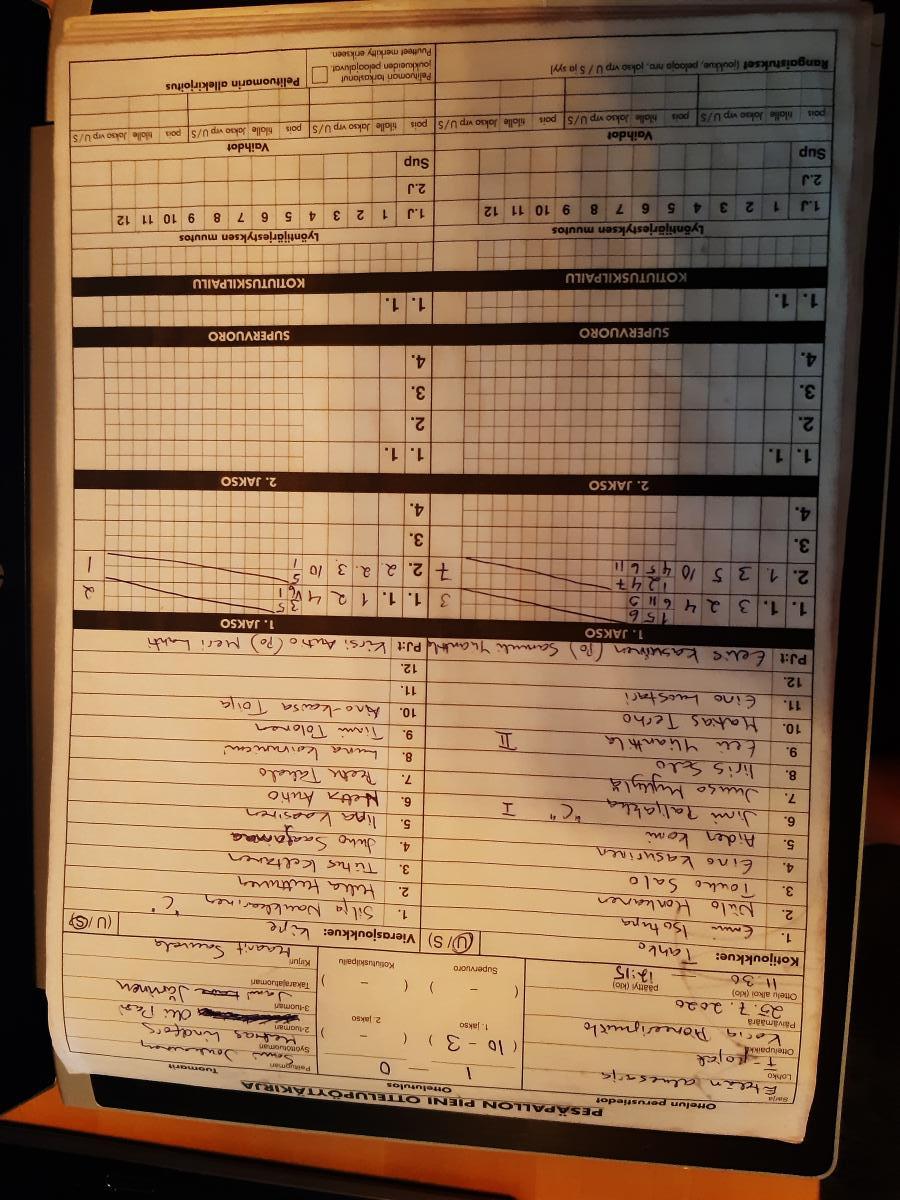 PESÄPALLON PIENI OTTELUPÖYTÄKIRJA
Ottelun perustiedot
Ottelutulos
Tuomarit
Sarja
Etelän aluesarja
Lohko
T-pojat
Ottelupaikka
Koria
Päivämäärä
25.7.2020
Ottelu alkoi (klo)
11.30
päättyi (klo)
12:15
1 - 0
1. jakso
( 10 - 3 )
2. jakso
( - )
Supervuoro
( - )
Kotiutuskilpailu
( - )
Pelituomari
Syöttötuomari
2-tuoman
3-tuoman
Takarajatuomari
Jani Järvinen
Kirjuri
Maarit
Kotijoukkue: Tahko (U/S)
1. Emmi Isotupa
2. Niilo Honkanen
3. Touko Salo
4. Eino Kasurinen
5. Aiden Komi
6. Jimi Paljakka "C" I
7. Juuso Myllylä
8. Iiris Salo
9. Eeli Ylianttila II
10. Matias Terho
11. Eino Luostari
12.
PJ:t Eelis Kasurinen (PJ) Samuli Ylianttila
Vierasjoukkue: Kipe (U/S)
1. Silja Naukkarinen "C"
2. Huttunen
3. Titus Keltanen
4. Juho
5. Iina Kaasinen
6. Netta Autio
7. Peetu
8.
9. Timi Tolonen
10. Aino-Kaisa Toija
11.
12.
PJ:t Kirsi Autio (PJ) Meri Lahti
1. JAKSO
1. JAKSO
1. 1. 3 2 4 6 11 5 3
1 5 6
2. 1. 3 5 10 4 5 6 11 7
1 2 4 7
3.
4.
1. 1. 1 2 4 2
2. 2. 2. 3. 10 5 1 1
3.
4.
2. JAKSO
2. JAKSO
1. 1.
2.
3.
4.
1. 1.
2.
3.
4.
SUPERVUORO
SUPERVUORO
1. 1.
1. 1.
KOTIUTUSKILPAILU
KOTIUTUSKILPAILU
Lyöntijärjestyksen muutos
Lyöntijärjestyksen muutos
1.J 1 2 3 4 5 6 7 8 9 10 11 12
2.J
Sup
1.J 1 2 3 4 5 6 7 8 9 10 11 12
2.J
Sup
Vaihdot
Vaihdot
pois tilalle Jakso vrp U/S pois tilalle Jakso vrp U/S pois tilalle Jakso vrp U/S
pois tilalle Jakso vrp U/S pois tilalle Jakso vrp U/S pois tilalle Jakso vrp U/S
Rangaistukset (joukkue, pelaaja nro, jakso vrp U / S ja syy)
Pelituomari tarkastanut
joukkueiden pelaajaluvat.
Puutteet merkitty erikseen.
Pelituomarin allekirjoitus